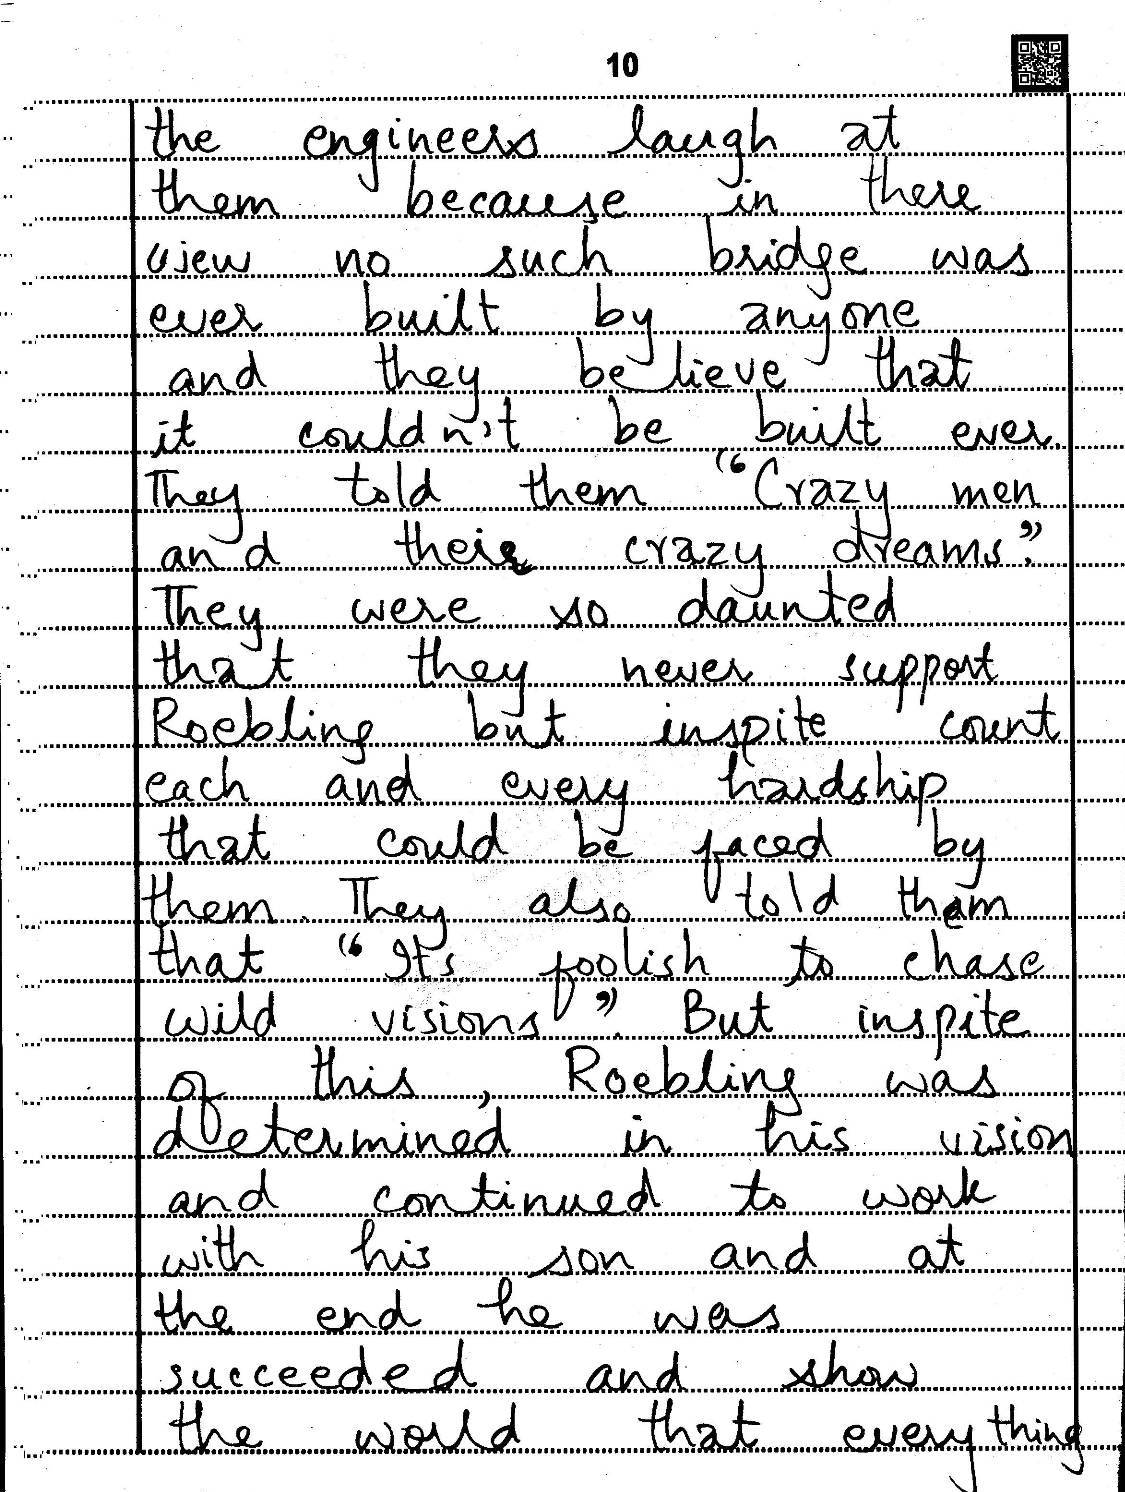 10
the engineers laugh at
them because in there
view no such bridge was
ever built by anyone
and they believe that
it couldn't be built ever.
They told them "Crazy men
and their crazy dreams".
They were so daunted
that they never support
Roebling but inspite count
each and every hardship
that could be faced by
them. They also told them
that "It's foolish to chase
wild visions". But inspite
of this, Roebling was
determined in his vision
and continued to work
with his son and at
the end he was
succeeded and show
the world that everything